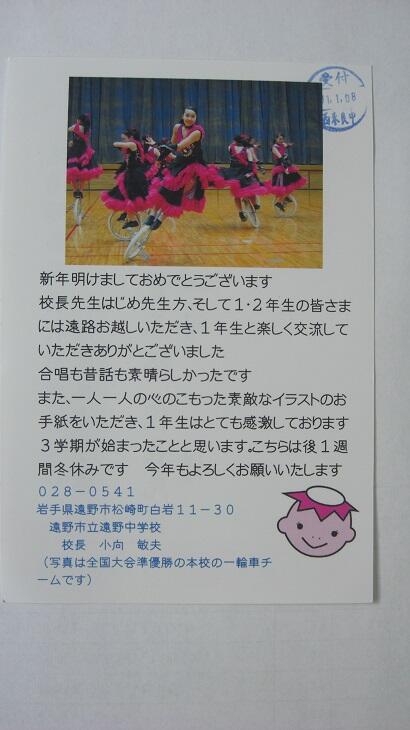 受付
1.1.08
西奈良中
新年明けましておめでとうございます
校長先生はじめ先生方、そして１・２年生の皆さま
には遠路お越しいただき、１年生と楽しく交流して
いただきありがとございました
合唱も昔話も素晴らしかったです
また、一人一人の心のこもった素敵なイラストのお
手紙をいただき、１年生はとても感激しております
３学期が始まったことと思います。こちらは後１週
間冬休みです　今年もよろしくお願いいたします
０２８－０５４１
岩手県遠野市松崎町白岩１１－３０
遠野市立遠野中学校
校長　小向　敏夫
（写真は全国大会準優勝の本校の一輪車チ
ームです）